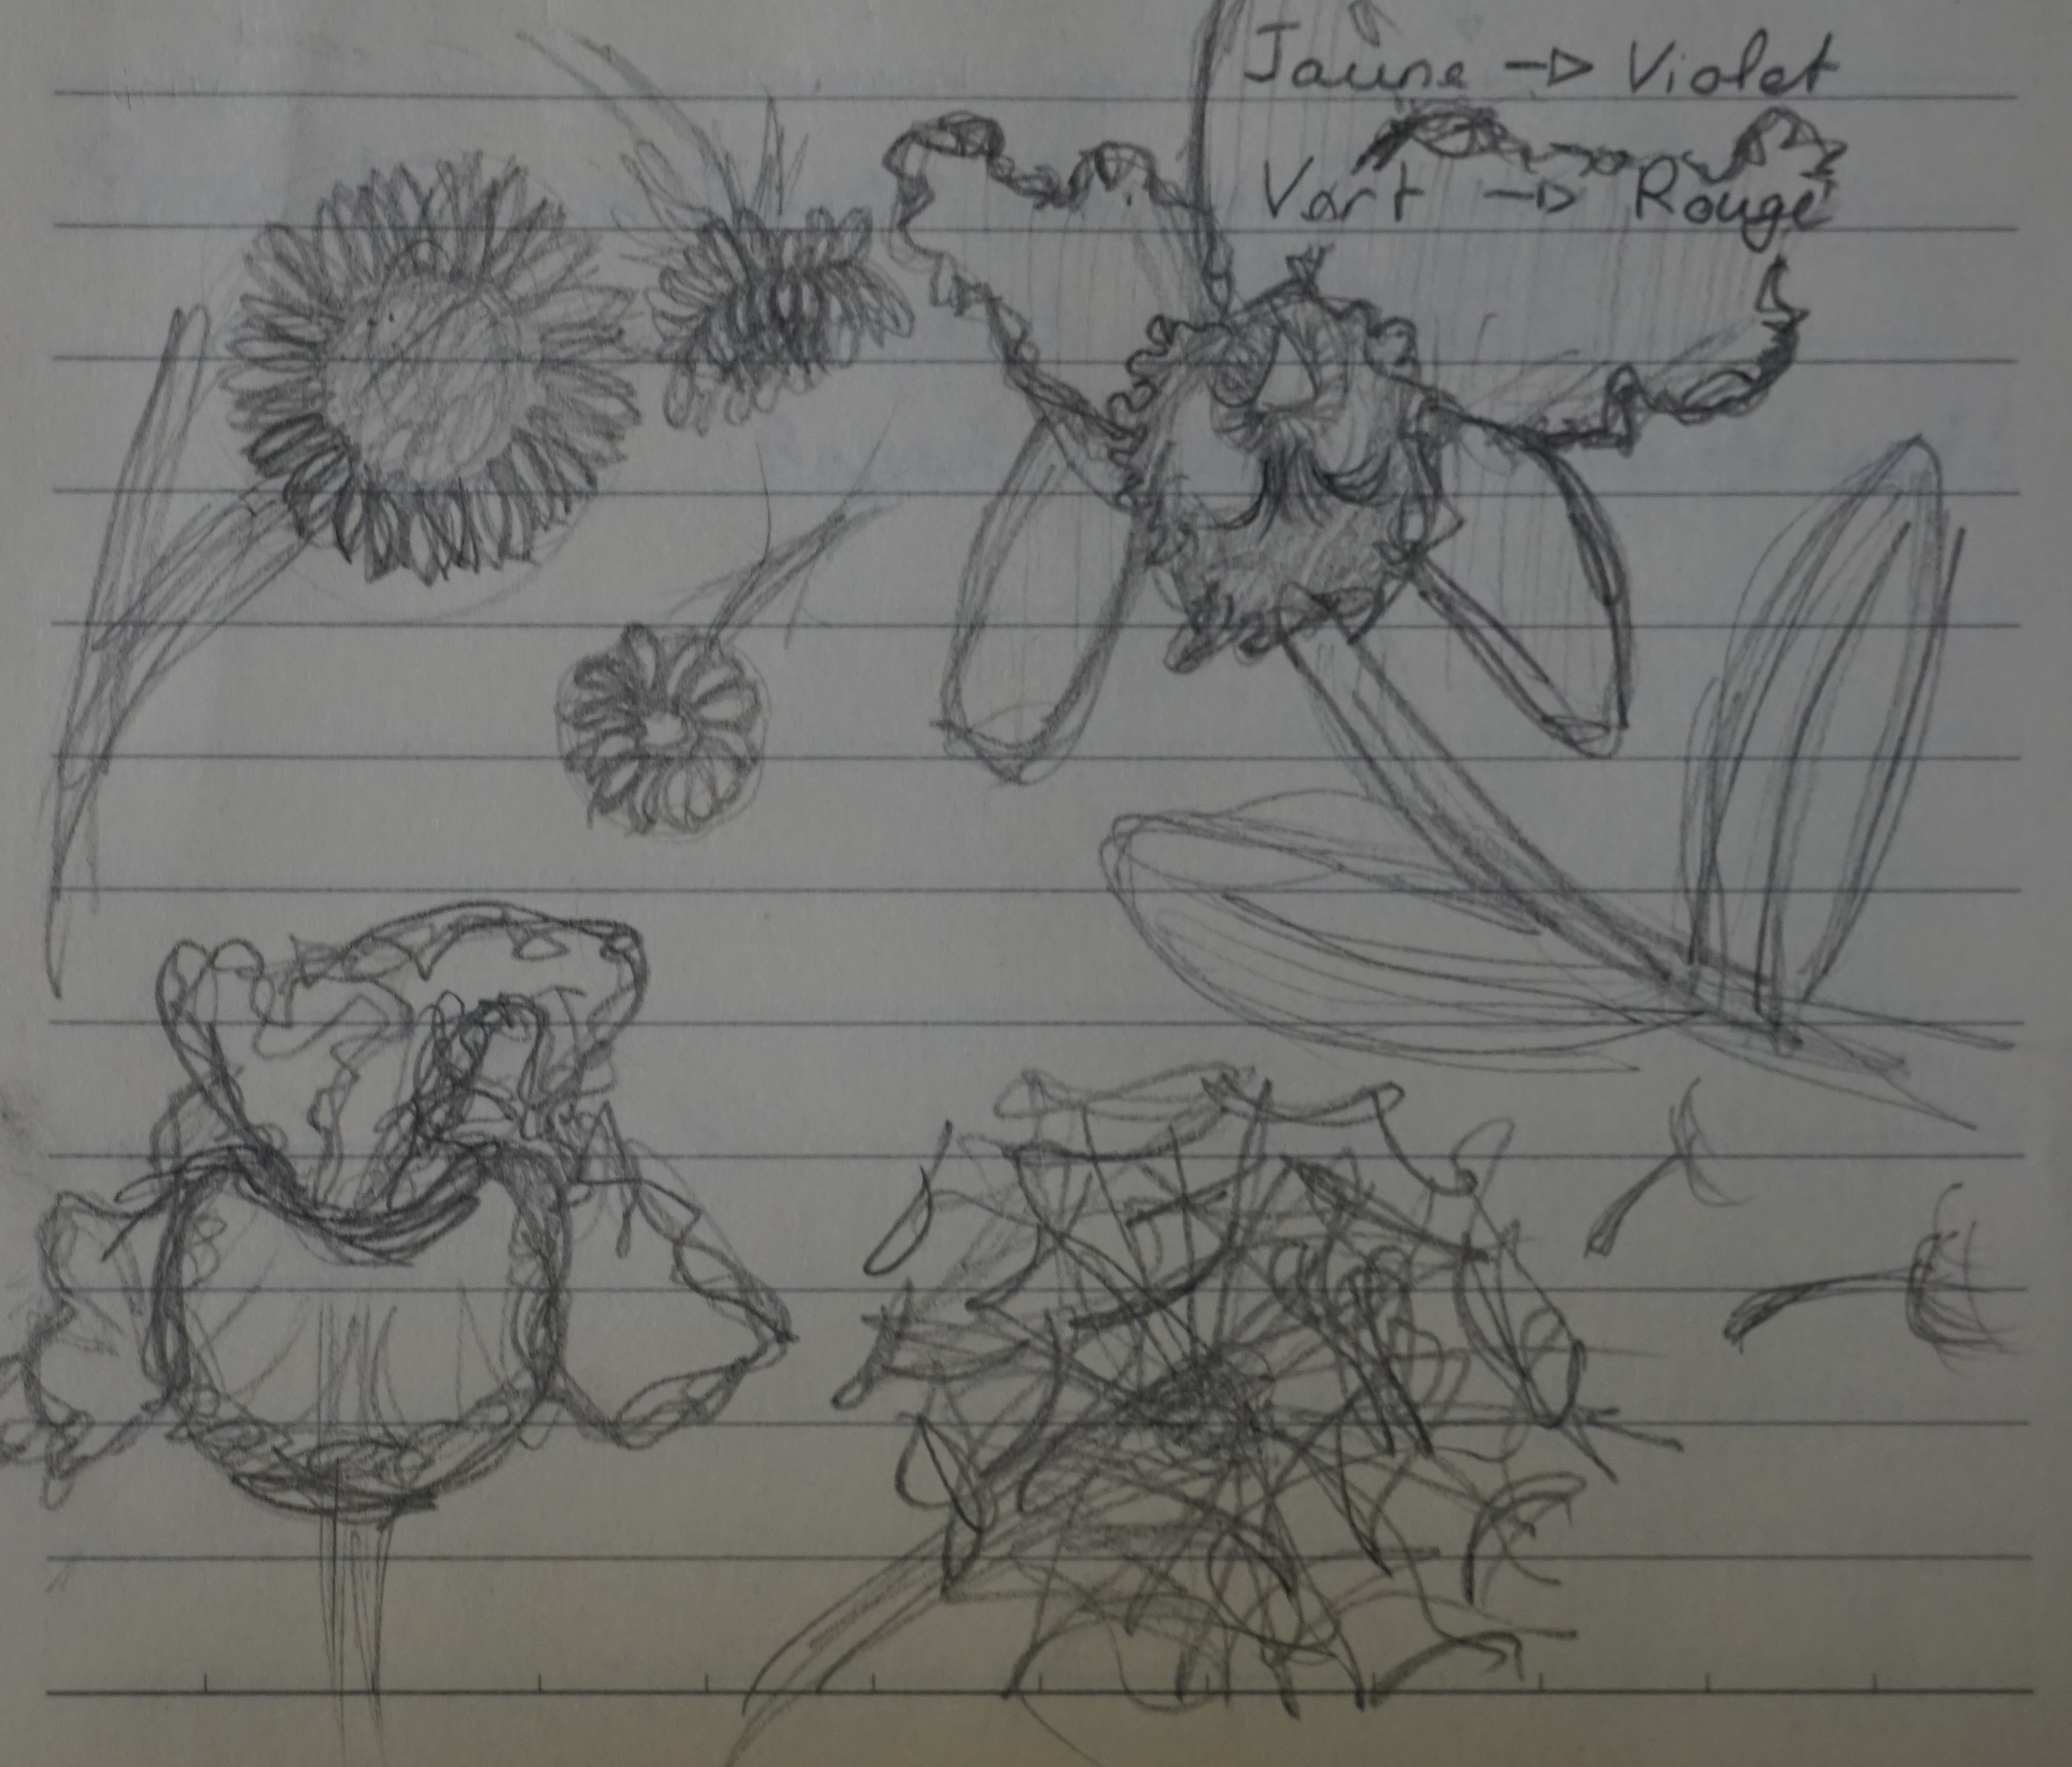 Jaune -> Violet
Vert -> Rouge